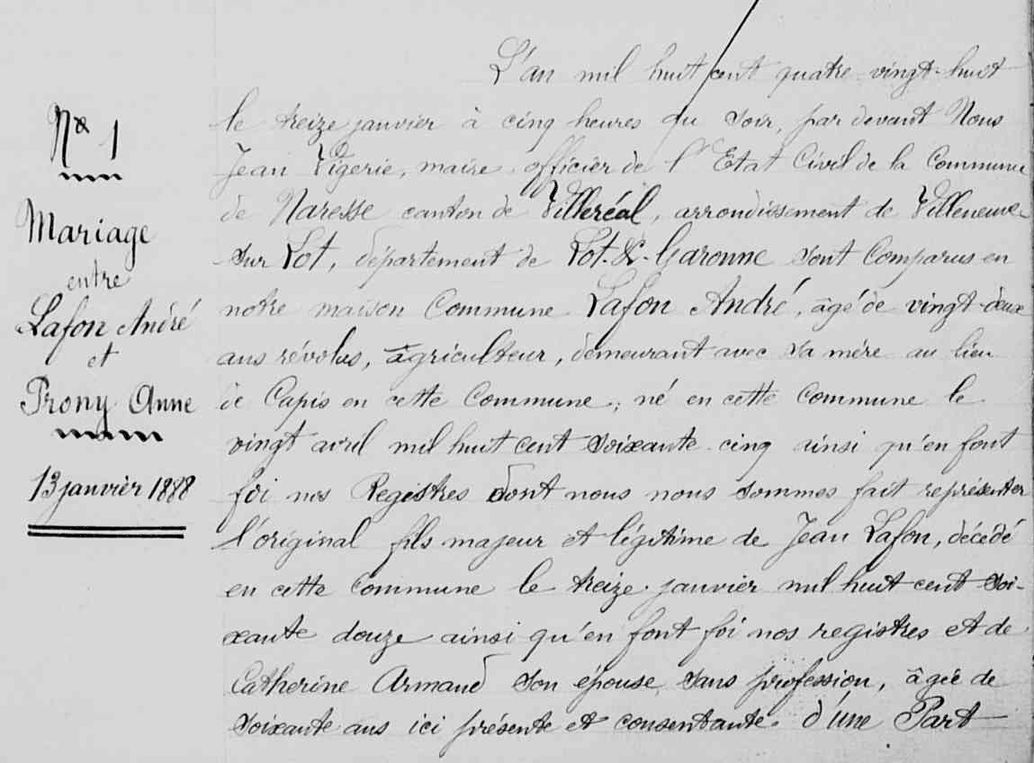 N° 1
Mariage
entre
Lafon André
et
Prony Anne
13 janvier 1888
L'an mil huit cent quatre-vingt-huit
le treize janvier à cinq heures du soir, par devant Nous
Jean Vigerie, maire, officier de l'Etat Civil de la Commune
de Naresse canton de Villeréal, arrondissement de Villeneuve-
sur Lot, département de Lot-&-Garonne sont Comparus en
notre maison Commune Lafon André, âgé de vingt-deux
ans révolus, agriculteur, demeurant avec sa mère au lieu
de Capis en cette Commune; né en cette commune le
vingt avril mil huit cent soixante-cinq ainsi qu'en font
foi nos Registres dont nous nous sommes fait représenter
l'original fils majeur et légitime de Jean Lafon, décédé
en cette Commune le treize janvier mil huit cent soi-
xante douze ainsi qu'en font foi nos registres et de
Catherine Armand son épouse sans profession, âgée de
soixante ans ici présente et consentante. d'une Part